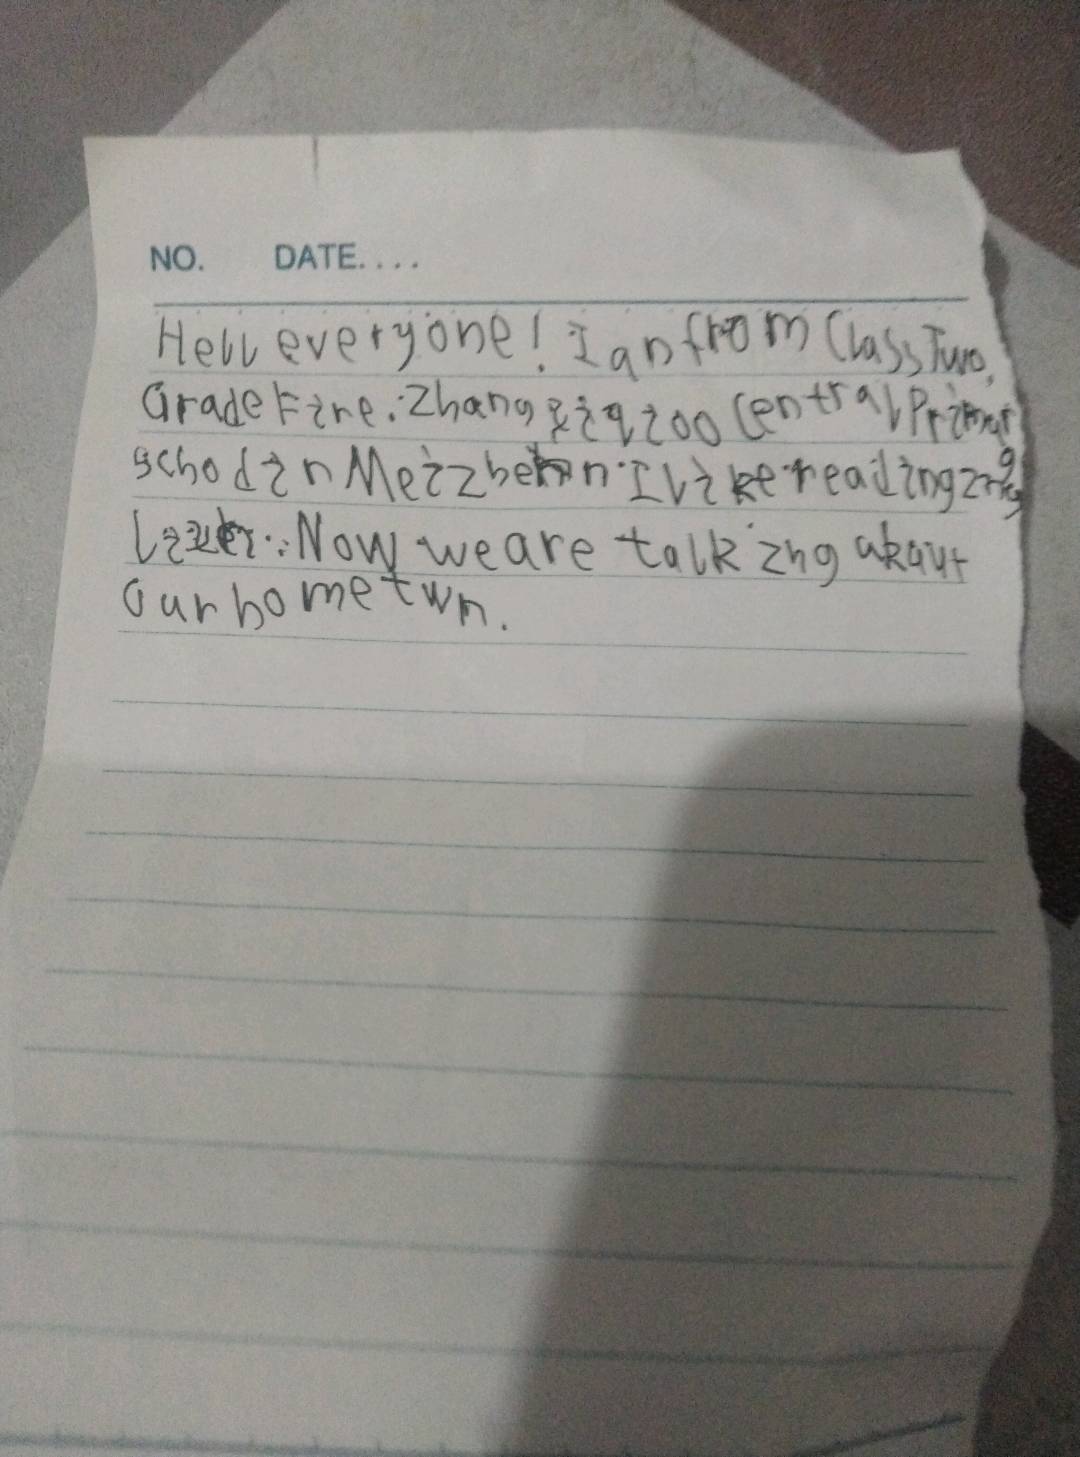 NO. DATE....
Hell everyone! I an from Class Two,
Grade Fire. Zhang ziqzoo Central Primary
school in Meizhen. I like reading
Now we are talking about
our hometwn.